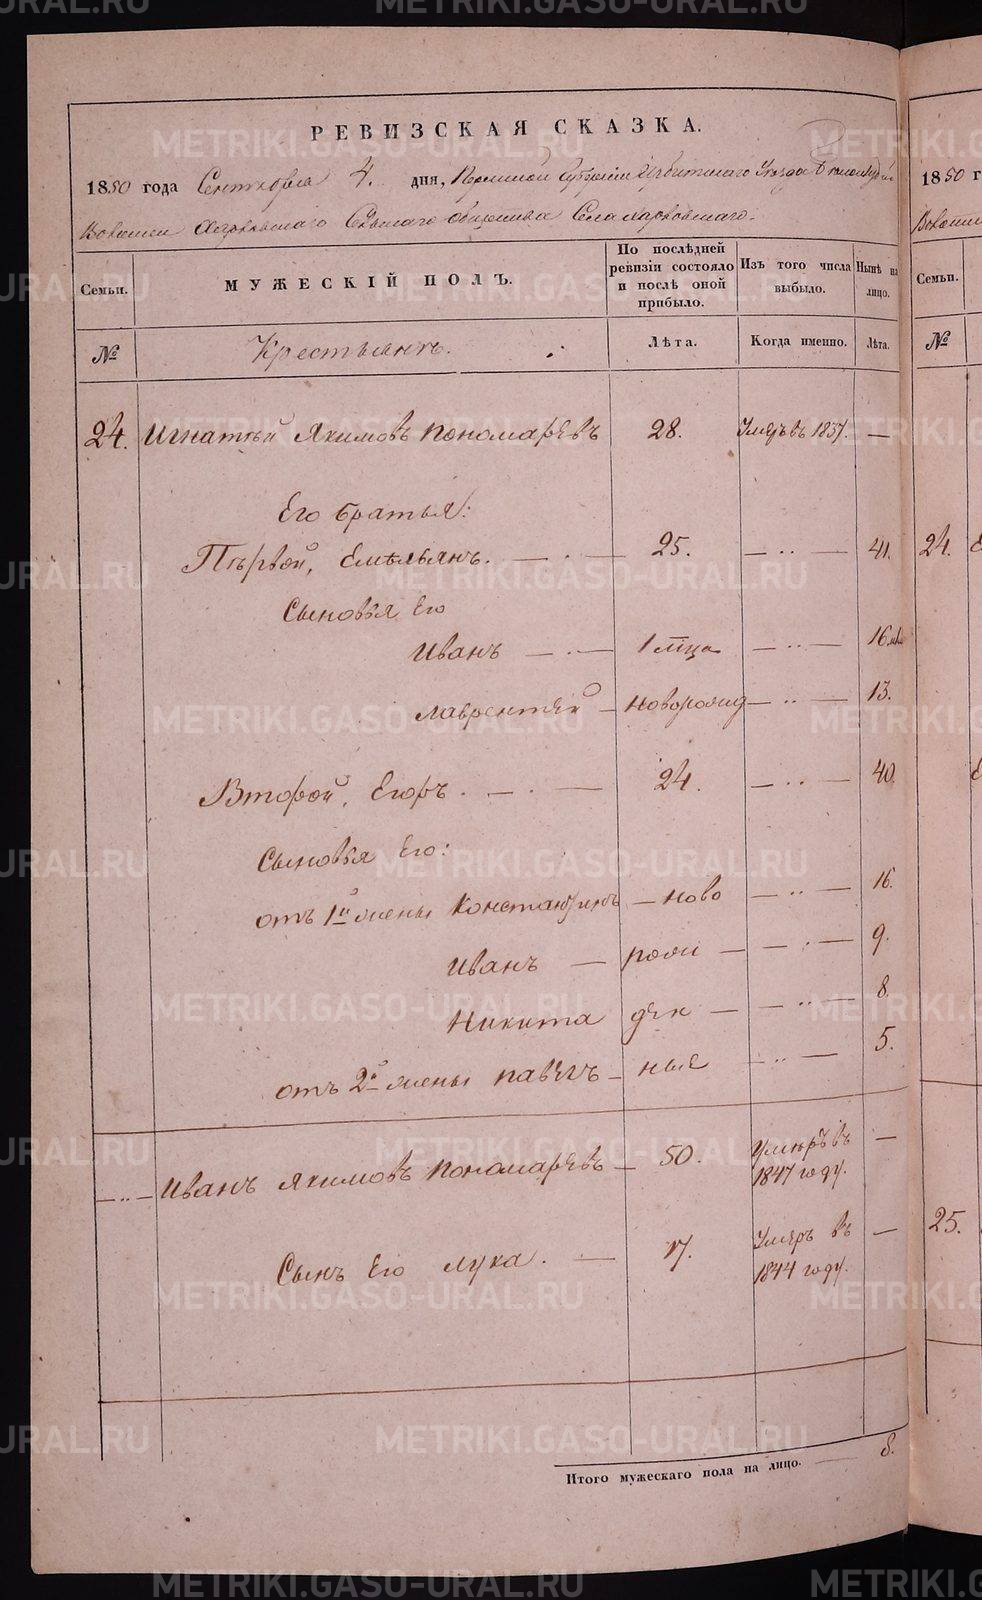 РЕВИЗСКАЯ СКАЗКА.
1850 года Сентября 4. дня, Пермской Губернии Ирбитского Уезда
Волости Харловскаго Сельскаго общества Села Харловскаго.
Семьи. МУЖЕСКІЙ ПОЛЪ. По послѣдней ревизіи состояло и послѣ оной прибыло. Изъ того числа выбыло. Нынѣ на лицо.
№ Крестьянъ. Лѣта. Когда именно. Лѣта.
24. Игнатей Якимовъ Пономаревъ 28. Умеръ въ 1837. —
Его братья:
Первой, Емельянъ. — 25. — 41.
Сыновья Его
Иванъ — 1 — 16
Лаврентей — новорожд — 13.
Второй, Егоръ. — 24. — 40.
Сыновья Его:
отъ 1й жены Константинъ — ново — 16.
Иванъ — рож — 9.
Никита ден — 8.
отъ 2й жены Павелъ — ные — 5.
— Иванъ Якимовъ Пономаревъ — 50. Умеръ въ 1847 году. —
Сынъ Его Лука. — 17. Умеръ въ 1844 году. —
Итого мужескаго пола на лицо. 8.
1850 г
Семьи.
№
24.
25.
METRIKI.GASO-URAL.RU